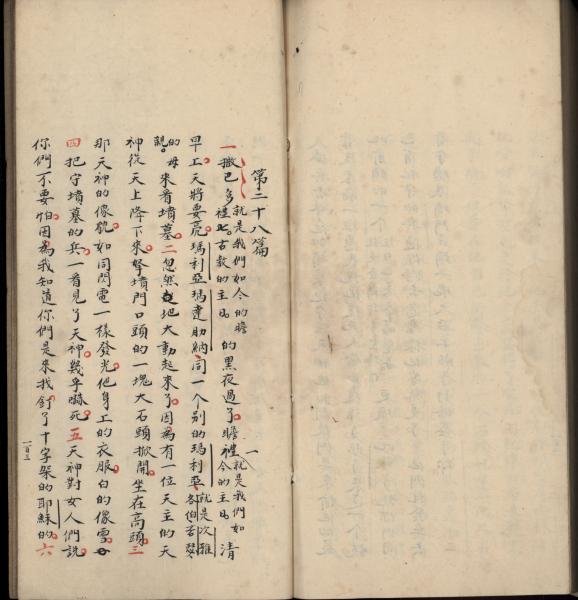 第二十八篇
一撒已多就是我們如今的瞻禮七。古教的主日的黑夜過了。瞻禮一就是我們如今的主日清
早上天將要亮。瑪利亞瑪達肋納。同一個别的瑪利亞就是次雅各伯若瑟
的母親。來看墳墓。二忽然地大動起來了。因為有一位天主的天
神從天上降下來。拏墳門口頭的一塊大石頭掀開。坐在高頭。三
那天神的像貌。如同閃電一樣發光。他身上的衣服。白的像雪。
四把守墳墓的兵。一看見了天神。幾乎嚇死。五天神對女人們說。
你們不要怕。因為我知道你們是來找釘了十字架的耶穌的。六
一百三